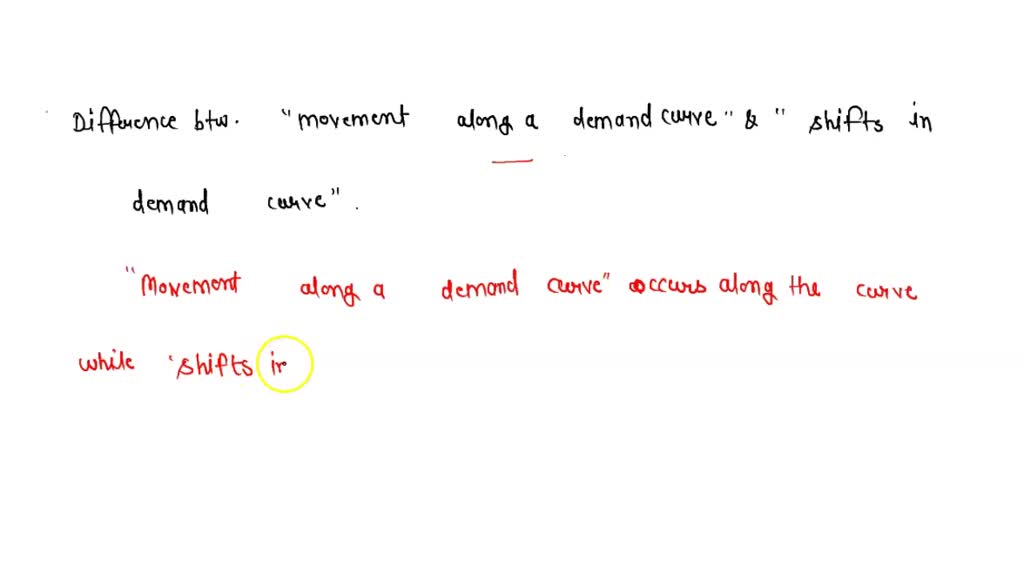 Difference btw. "movement along a demand curve" & " shifts in
demand curve".
"Movement along a demand curve" occurs along the curve
while 'shifts in